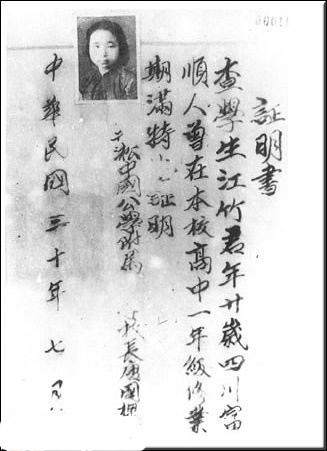 証明書
查學生江竹君年廿歲四川富
順人曾在本校高中一年級修業
期滿特此証明
淞中國公學附属 校長 國
中華民國三十年七月